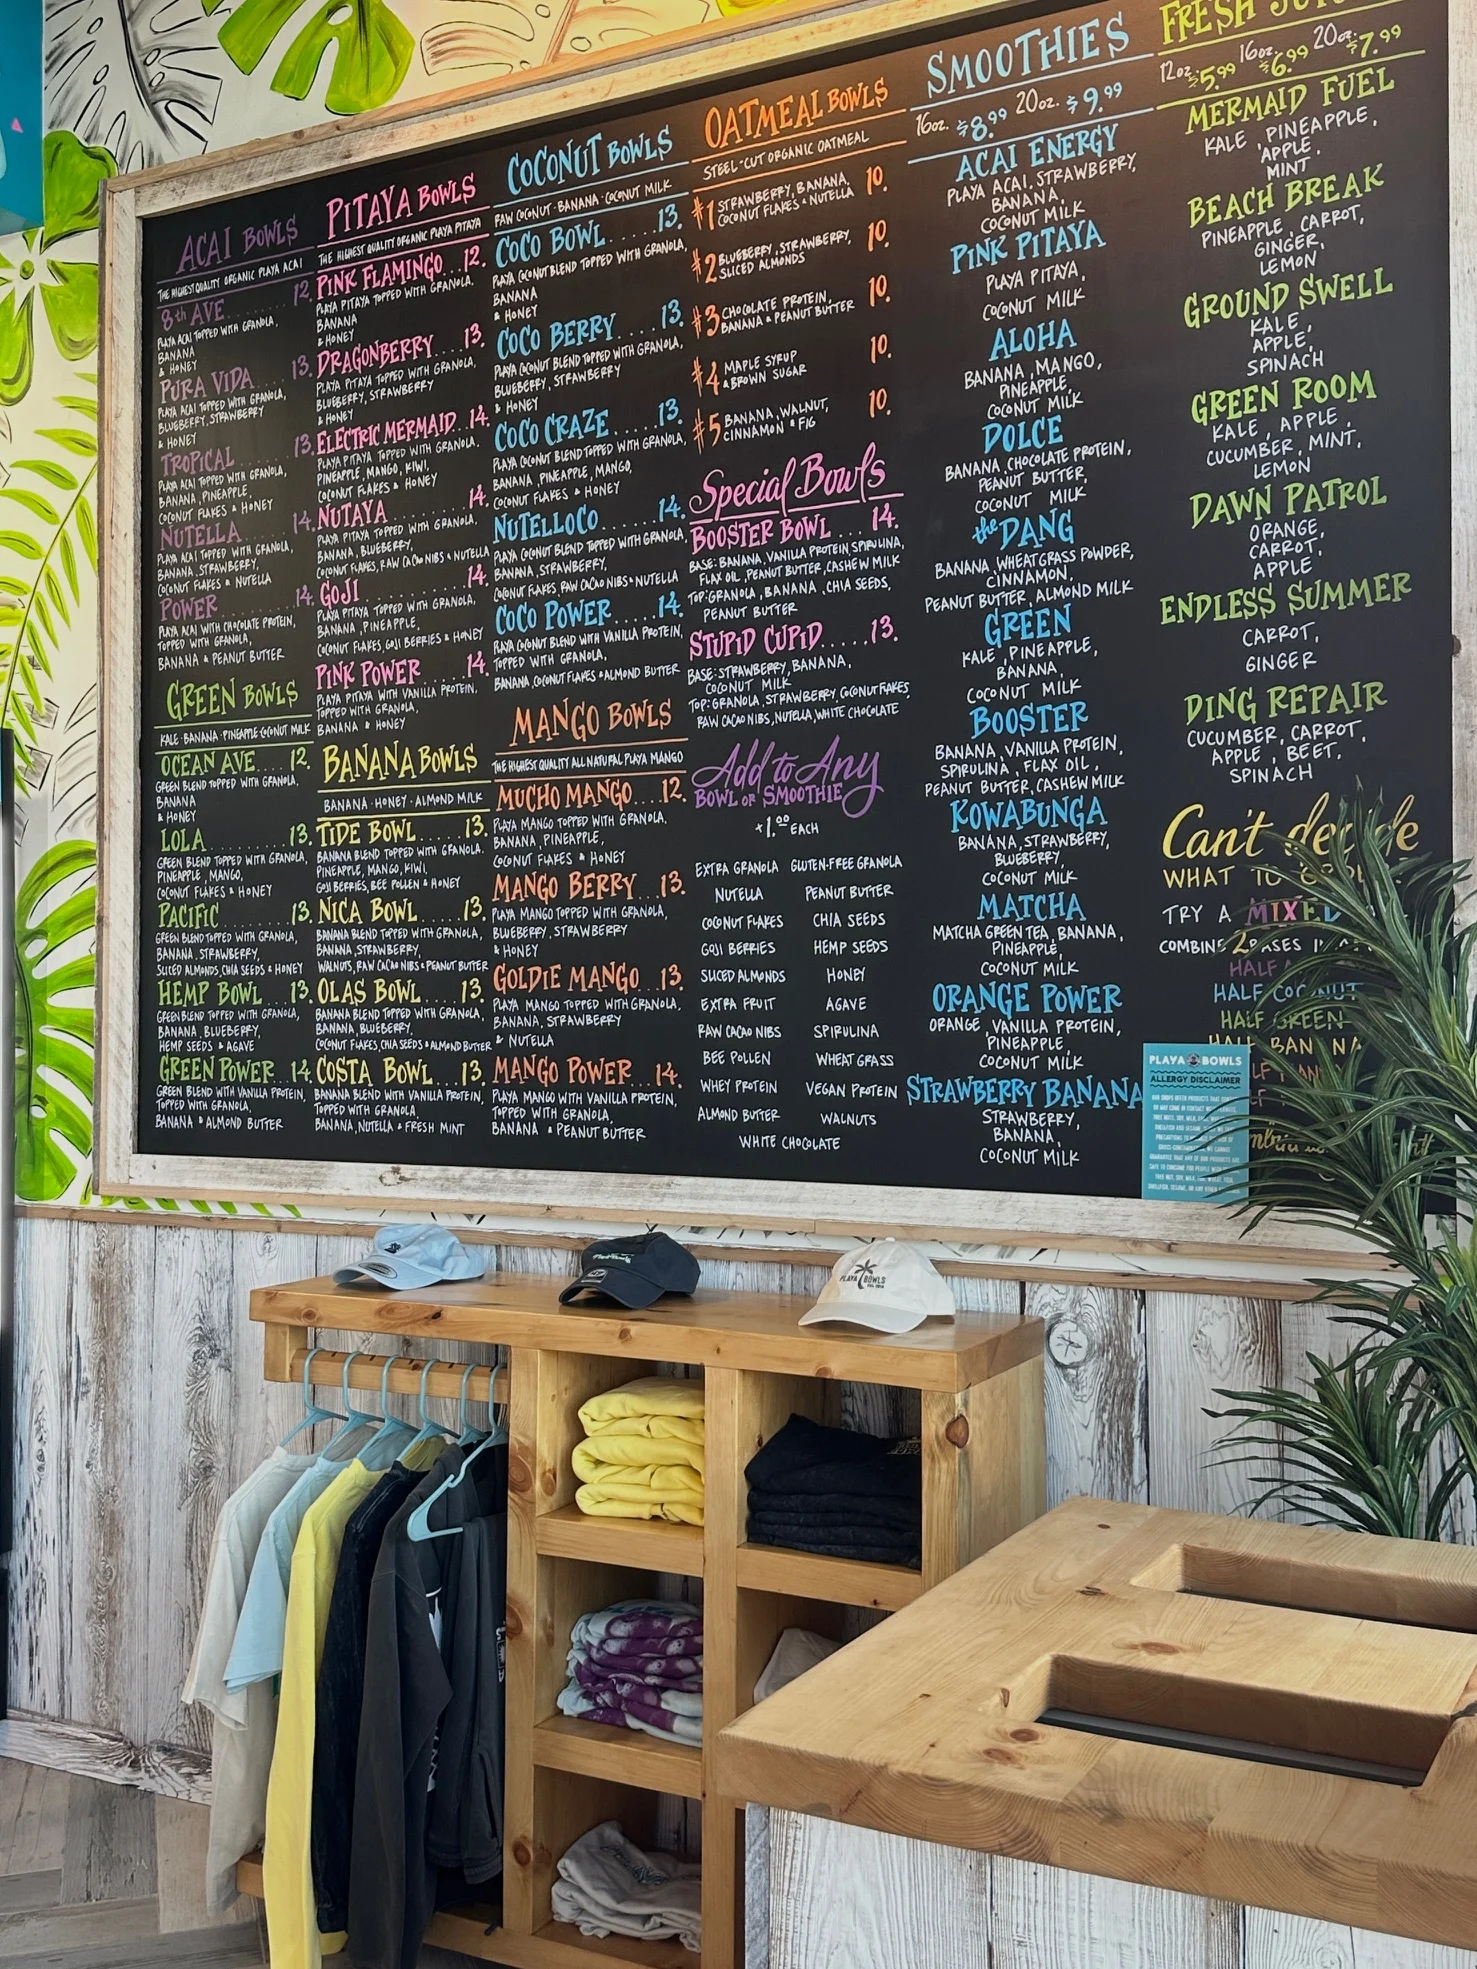 ACAI BOWLS
THE HIGHEST QUALITY ORGANIC PLAYA ACAI
8th AVE........12.
PLAYA ACAI TOPPED WITH GRANOLA,
BANANA
& HONEY
PURA VIDA....13.
PLAYA ACAI TOPPED WITH GRANOLA,
BLUEBERRY, STRAWBERRY
& HONEY
TROPICAL......13.
PLAYA ACAI TOPPED WITH GRANOLA,
BANANA, PINEAPPLE,
COCONUT FLAKES & HONEY
NUTELLA......14.
PLAYA ACAI TOPPED WITH GRANOLA,
BANANA, STRAWBERRY,
COCONUT FLAKES & NUTELLA
POWER........14.
PLAYA ACAI WITH CHOCOLATE PROTEIN,
TOPPED WITH GRANOLA,
BANANA & PEANUT BUTTER
GREEN BOWLS
KALE · BANANA · PINEAPPLE · COCONUT MILK
OCEAN AVE...12.
GREEN BLEND TOPPED WITH GRANOLA,
BANANA
& HONEY
LOLA.........13.
GREEN BLEND TOPPED WITH GRANOLA,
PINEAPPLE, MANGO,
COCONUT FLAKES & HONEY
PACIFIC.......13.
GREEN BLEND TOPPED WITH GRANOLA,
BANANA, STRAWBERRY,
SLICED ALMONDS, CHIA SEEDS & HONEY
HEMP BOWL...13.
GREEN BLEND TOPPED WITH GRANOLA,
BANANA, BLUEBERRY,
HEMP SEEDS & AGAVE
GREEN POWER.14.
GREEN BLEND WITH VANILLA PROTEIN,
TOPPED WITH GRANOLA,
BANANA & ALMOND BUTTER
PITAYA BOWLS
THE HIGHEST QUALITY ORGANIC PLAYA PITAYA
PINK FLAMINGO...12.
PLAYA PITAYA TOPPED WITH GRANOLA,
BANANA
& HONEY
DRAGONBERRY....13.
PLAYA PITAYA TOPPED WITH GRANOLA,
BLUEBERRY, STRAWBERRY
& HONEY
ELECTRIC MERMAID.14.
PLAYA PITAYA TOPPED WITH GRANOLA,
PINEAPPLE, MANGO, KIWI,
COCONUT FLAKES & HONEY
NUTAYA..........14.
PLAYA PITAYA TOPPED WITH GRANOLA,
BANANA, BLUEBERRY,
COCONUT FLAKES, RAW CACAO NIBS & NUTELLA
GOJI............14.
PLAYA PITAYA TOPPED WITH GRANOLA,
BANANA, PINEAPPLE,
COCONUT FLAKES, GOJI BERRIES & HONEY
PINK POWER......14.
PLAYA PITAYA WITH VANILLA PROTEIN,
TOPPED WITH GRANOLA,
BANANA & HONEY
BANANA BOWLS
BANANA · HONEY · ALMOND MILK
TIDE BOWL.......13.
BANANA BLEND TOPPED WITH GRANOLA.
PINEAPPLE, MANGO, KIWI,
GOJI BERRIES, BEE POLLEN & HONEY
NICA BOWL.......13.
BANANA BLEND TOPPED WITH GRANOLA,
BANANA, STRAWBERRY,
WALNUTS, RAW CACAO NIBS & PEANUT BUTTER
OLAS BOWL......13.
BANANA BLEND TOPPED WITH GRANOLA,
BANANA, BLUEBERRY,
COCONUT FLAKES, CHIA SEEDS & ALMOND BUTTER
COSTA BOWL.....13.
BANANA BLEND WITH VANILLA PROTEIN,
TOPPED WITH GRANOLA,
BANANA, NUTELLA & FRESH MINT
COCONUT BOWLS
RAW COCONUT · BANANA · COCONUT MILK
COCO BOWL......13.
PLAYA COCONUT BLEND TOPPED WITH GRANOLA,
BANANA
& HONEY
COCO BERRY.....13.
PLAYA COCONUT BLEND TOPPED WITH GRANOLA,
BLUEBERRY, STRAWBERRY
& HONEY
COCO CRAZE.....13.
PLAYA COCONUT BLEND TOPPED WITH GRANOLA,
BANANA, PINEAPPLE, MANGO,
COCONUT FLAKES & HONEY
NUTELLOCO......14.
PLAYA COCONUT BLEND TOPPED WITH GRANOLA,
BANANA, STRAWBERRY,
COCONUT FLAKES, RAW CACAO NIBS & NUTELLA
COCO POWER.....14.
PLAYA COCONUT BLEND WITH VANILLA PROTEIN,
TOPPED WITH GRANOLA,
BANANA, COCONUT FLAKES & ALMOND BUTTER
MANGO BOWLS
THE HIGHEST QUALITY ALL NATURAL PLAYA MANGO
MUCHO MANGO....12.
PLAYA MANGO TOPPED WITH GRANOLA,
BANANA, PINEAPPLE,
COCONUT FLAKES & HONEY
MANGO BERRY...13.
PLAYA MANGO TOPPED WITH GRANOLA,
BLUEBERRY, STRAWBERRY
& HONEY
GOLDIE MANGO...13.
PLAYA MANGO TOPPED WITH GRANOLA,
BANANA, STRAWBERRY
& NUTELLA
MANGO POWER...14.
PLAYA MANGO WITH VANILLA PROTEIN,
TOPPED WITH GRANOLA,
BANANA & PEANUT BUTTER
OATMEAL BOWLS
STEEL-CUT ORGANIC OATMEAL
#1 STRAWBERRY, BANANA, 10.
COCONUT FLAKES & NUTELLA
#2 BLUEBERRY, STRAWBERRY, 10.
SLICED ALMONDS
#3 CHOCOLATE PROTEIN, 10.
BANANA & PEANUT BUTTER
#4 MAPLE SYRUP 10.
& BROWN SUGAR
#5 BANANA, WALNUT, 10.
CINNAMON & FIG
Special Bowls
BOOSTER BOWL...14.
BASE: BANANA, VANILLA PROTEIN, SPIRULINA,
FLAX OIL, PEANUT BUTTER, CASHEW MILK
TOP: GRANOLA, BANANA, CHIA SEEDS,
PEANUT BUTTER
STUPID CUPID.....13.
BASE: STRAWBERRY, BANANA,
COCONUT MILK
TOP: GRANOLA, STRAWBERRY, COCONUT FLAKES,
RAW CACAO NIBS, NUTELLA, WHITE CHOCOLATE
Add to Any
BOWL or SMOOTHIE
+1.00 EACH
EXTRA GRANOLA GLUTEN-FREE GRANOLA
NUTELLA PEANUT BUTTER
COCONUT FLAKES CHIA SEEDS
GOJI BERRIES HEMP SEEDS
SLICED ALMONDS HONEY
EXTRA FRUIT AGAVE
RAW CACAO NIBS SPIRULINA
BEE POLLEN WHEAT GRASS
WHEY PROTEIN VEGAN PROTEIN
ALMOND BUTTER WALNUTS
WHITE CHOCOLATE
SMOOTHIES
16oz. $8.99 20oz. $9.99
ACAI ENERGY
PLAYA ACAI, STRAWBERRY,
BANANA,
COCONUT MILK
PINK PITAYA
PLAYA PITAYA,
COCONUT MILK
ALOHA
BANANA, MANGO,
PINEAPPLE,
COCONUT MILK
DOLCE
BANANA, CHOCOLATE PROTEIN,
PEANUT BUTTER,
COCONUT MILK
the DANG
BANANA, WHEATGRASS POWDER,
CINNAMON,
PEANUT BUTTER, ALMOND MILK
GREEN
KALE, PINEAPPLE,
BANANA,
COCONUT MILK
BOOSTER
BANANA, VANILLA PROTEIN,
SPIRULINA, FLAX OIL,
PEANUT BUTTER, CASHEW MILK
KOWABUNGA
BANANA, STRAWBERRY,
BLUEBERRY,
COCONUT MILK
MATCHA
MATCHA GREEN TEA, BANANA,
PINEAPPLE,
COCONUT MILK
ORANGE POWER
ORANGE, VANILLA PROTEIN,
PINEAPPLE,
COCONUT MILK
STRAWBERRY BANANA
STRAWBERRY,
BANANA,
COCONUT MILK
FRESH
12oz. $5.99 16oz. $6.99 20oz. $7.99
MERMAID FUEL
KALE, PINEAPPLE,
APPLE,
MINT
BEACH BREAK
PINEAPPLE, CARROT,
GINGER,
LEMON
GROUND SWELL
KALE,
APPLE,
SPINACH
GREEN ROOM
KALE, APPLE,
CUCUMBER, MINT,
LEMON
DAWN PATROL
ORANGE,
CARROT,
APPLE
ENDLESS SUMMER
CARROT,
GINGER
DING REPAIR
CUCUMBER, CARROT,
APPLE, BEET,
SPINACH
Can't decide
WHAT TO
TRY A MIXED
COMBINE 2 BASES
HALF
HALF COCONUT
HALF GREEN
HALF BANANA
PLAYA BOWLS
ALLERGY DISCLAIMER
PLAYA BOWLS